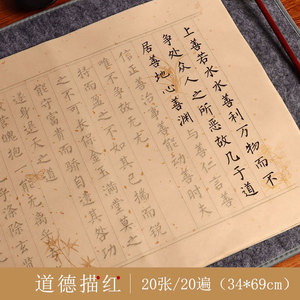 上善若水水善利万物而不
争处众人之所恶故几于道
居善地心善渊与善仁言善
信正善治事善能动善时夫
唯不争故无尤
持而盈之不如其已揣而锐
之不可长保金玉满堂莫之
能守富贵而骄自遗其咎功
遂身退天之道
营魄抱一能无离乎
涤除玄
道德描红
20张/20遍（34*69cm）